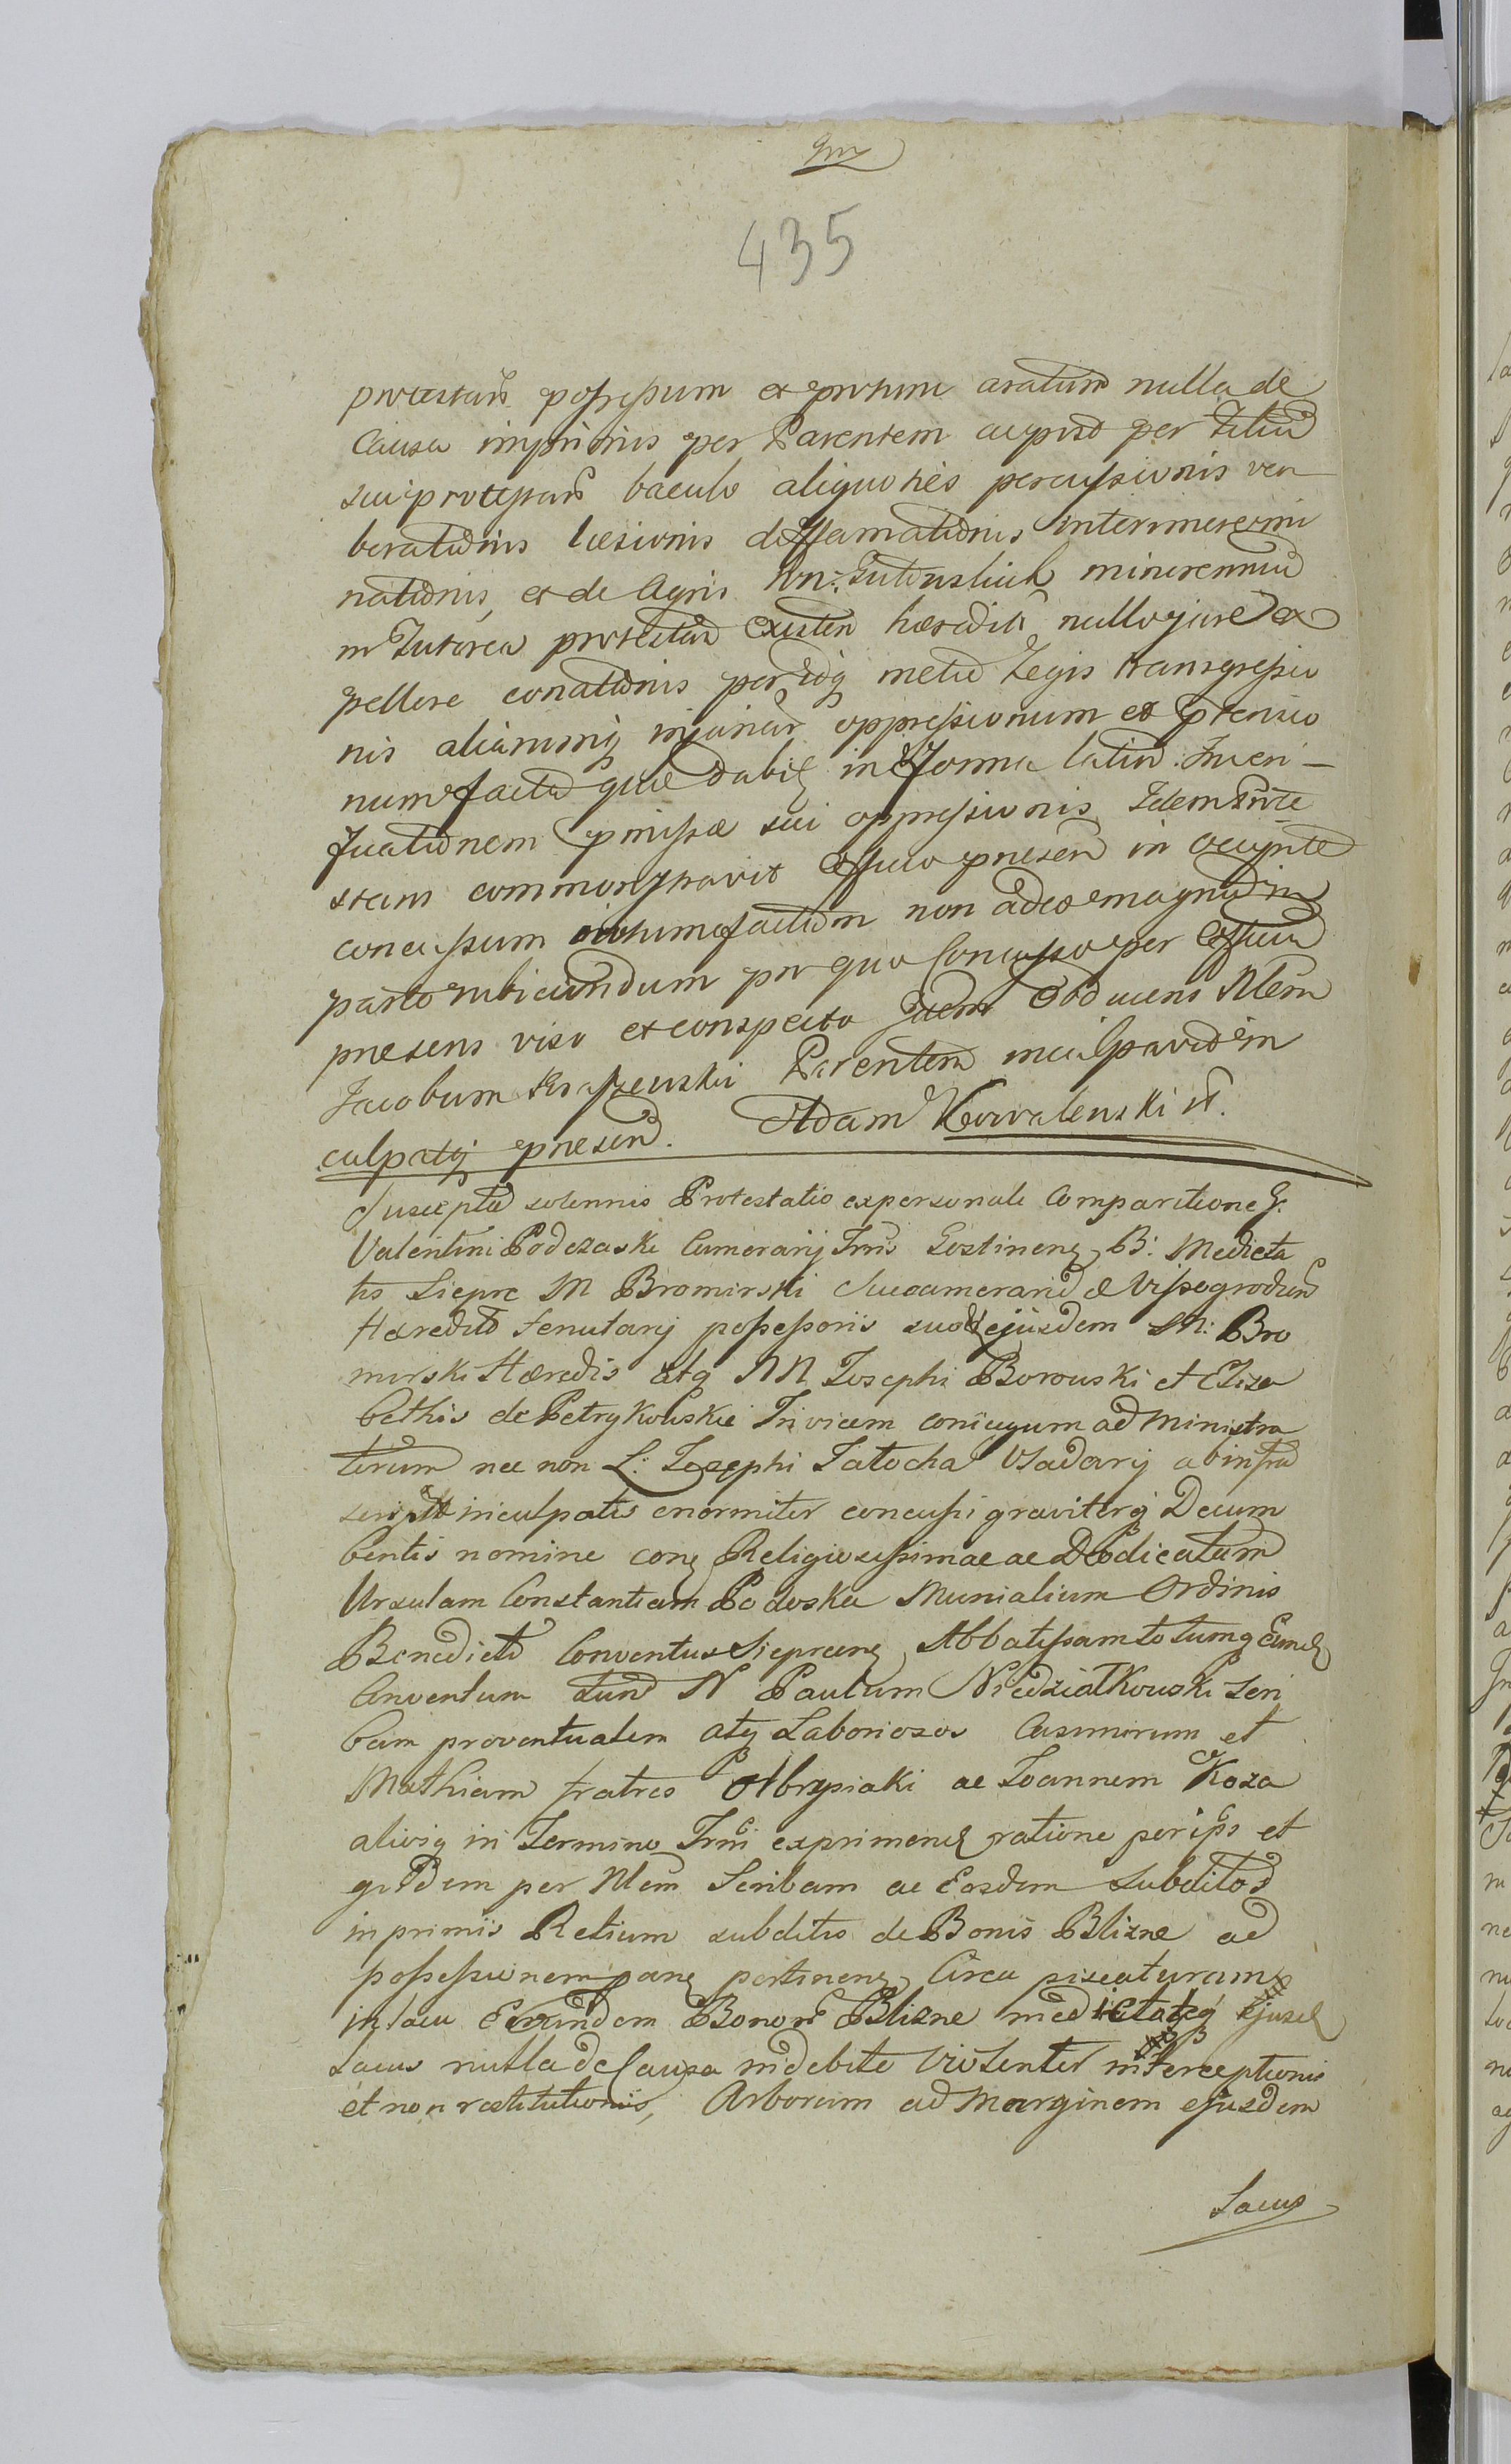 435
protestans possessum et protunc aratum nulla de
Causa imprimis per Parentem ac post per Filium
sui protestans baculo aliquoties percussionis ver
berationis læsionis diffamationis
nationis, et de Agris
protestan existen hæredit nullo jure ex
pellere conationis metu Legis transgressio
nis aliarumq injuriar oppressionum et
num facta quæ dabit in Forma latiu. Inveri-
ficationem præmissæ sui oppressionis Idem Prote
stans commonstravit Officio presen in Occipite
concussum non adeo magnum in
parte rubicundum pr quo Concusso per Officiu
presens viso et conspecto Idem Obducens Nlem
Jacobum Parentem inculpavit in
culpatq presen. Adam Kowalewski
Suscepta solennis Protestatio ex personali Comparitione G.
Valentini Podczaski Camerarij Trris Gostinens B: Medieta
tis Sieprc M Bromirski Succamerarid Wissogrodien
Hæredit tenutarij possessoris suo & ejusdem M: Bro
mirski Hæredis atq NN Josephi Borowski et Eliza
bethis de Petrykowskie Invicem coniugum administra
torum nec non L: Josephi Tatocha Osadarij ab infra
script inculpatis enormiter concussi graviterq Decum
bentis nomine conq Religiosissimae ac Deo dicatam
Ursulam Constantiam Podoska Monialium Ordinis
Benedicti Conventus Sieprcens Abbatissam totumq Eund
Conventum tum N Paulum Niedziałkowski Scri
bam proventualem atq Laboriosos Casimirum et
Mathiam fratres Olbrysiaki ac Joannem Koza
aliosq in Termino Trrii exprimend ratione per ipsos et
q dem per Nlem Scribam ac Eosdem Subditos
inprimis Retium subditis de Bonis Blizne ad
possessionem pang pertinens Circa piscaturam
in lacu Eorundem Bonor Blizne medietateq Ejusd
Lacus nulla de Causa indebite violenter interceptionis
et non restitutionis, Arborum ad marginem ejusdem
Lacus